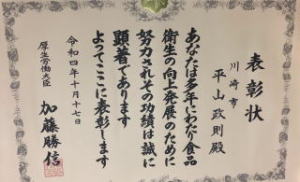 表彰状
川崎市
平山政則殿
あなたは多年にわたり食品
衛生の向上発展のために
努力されその功績は誠に
顕著であります
よってここに表彰します
令和四年十月十七日
厚生労働大臣
加藤勝信